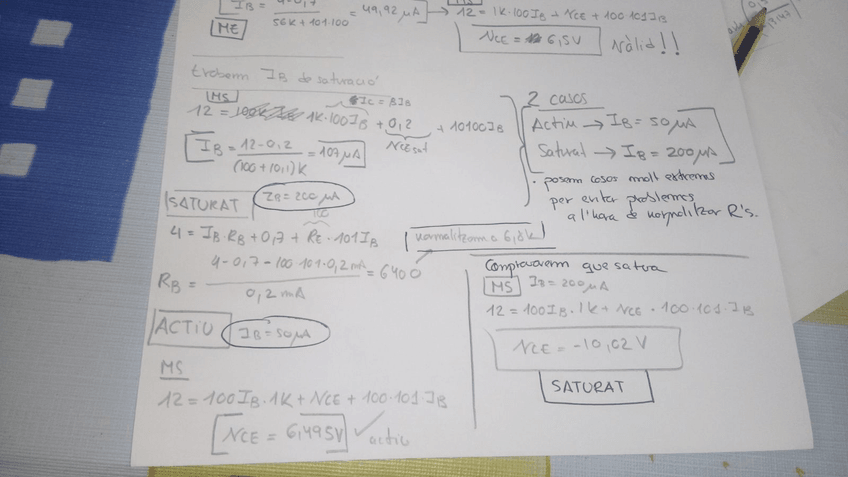 IB = 4-0,7 / 56K + 101·100 = 49,92 μA → 12 = 1K·100IB + VCE + 100·101IB
ME
VCE = 6,5V Vàlid!!
trobem IB de saturació
MS
IC = βIB
12 = 1K·100IB + 0,2 + 10100IB
VCEsat
IB = 12-0,2 / (100+10,1)K = 107 μA
2 casos
Actiu → IB = 50 μA
Saturat → IB = 200 μA
· posem casos molt extrems
per evitar problemes
a l'hora de normalitzar R's.
SATURAT IB = 200 μA
100
4 = IB·RB + 0,7 + RE·101IB
normalitzem a 6,8K
RB = 4-0,7-100·101·0,2mA / 0,2mA = 6400
ACTIU IB = 50 μA
MS
12 = 100IB·1K + VCE + 100·101·IB
VCE = 6,495V ✓ actiu
Comprovarem que satura
MS IB = 200 μA
12 = 100IB·1K + VCE · 100·101·IB
VCE = -10,02 V
SATURAT